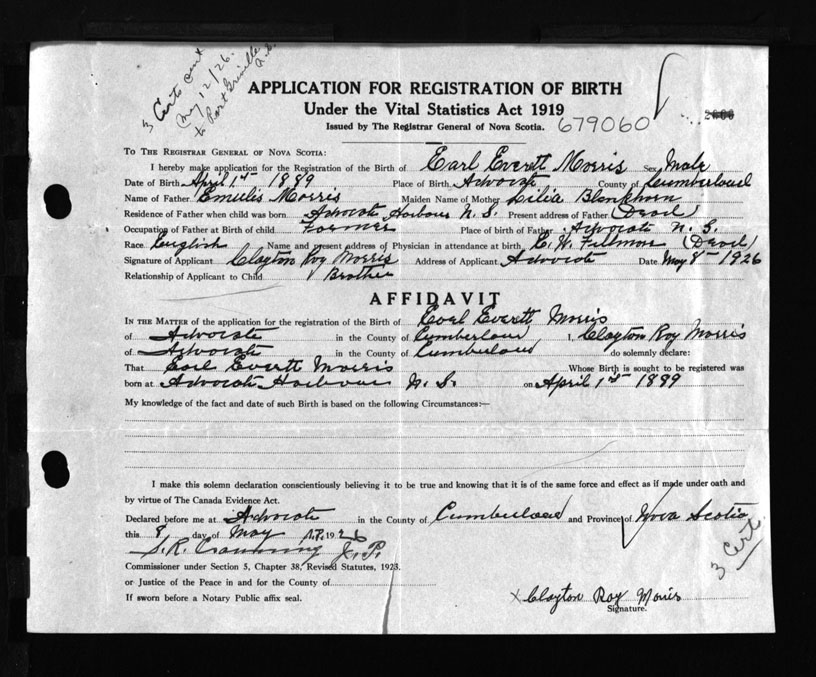 3 Certs sent
May 12/26.
to Port Greville
N.S.
APPLICATION FOR REGISTRATION OF BIRTH
Under the Vital Statistics Act 1919
Issued by The Registrar General of Nova Scotia. 679060
TO THE REGISTRAR GENERAL OF NOVA SCOTIA:
I hereby make application for the Registration of the Birth of Earl Everett Morris Sex Male
Date of Birth April 1st 1889 Place of Birth Advocate County of Cumberland
Name of Father Morris Maiden Name of Mother Lilia Blenkhorn
Residence of Father when child was born Advocate Harbour N.S. Present address of Father (Dead)
Occupation of Father at Birth of child Farmer Place of birth of Father Advocate N.S.
Race English Name and present address of Physician in attendance at birth E. W. Fillmore (Dead)
Signature of Applicant Clayton Roy Morris Address of Applicant Advocate Date May 8th 1926
Relationship of Applicant to Child Brother
AFFIDAVIT
IN THE MATTER of the application for the registration of the Birth of Earl Everett Morris
of Advocate in the County of Cumberland I, Clayton Roy Morris
of Advocate in the County of Cumberland do solemnly declare:
That Earl Everett Morris Whose Birth is sought to be registered was
born at Advocate Harbour N.S. on April 1st 1889
My knowledge of the fact and date of such Birth is based on the following Circumstances:—
I make this solemn declaration conscientiously believing it to be true and knowing that it is of the same force and effect as if made under oath and
by virtue of The Canada Evidence Act.
Declared before me at Advocate in the County of Cumberland and Province of Nova Scotia
this 8 day of May A.D. 1926
S. R. J. P.
Commissioner under Section 5, Chapter 38, Revised Statutes, 1923.
or Justice of the Peace in and for the County of
If sworn before a Notary Public affix seal.
3 Cert.
x Clayton Roy Morris
Signature.